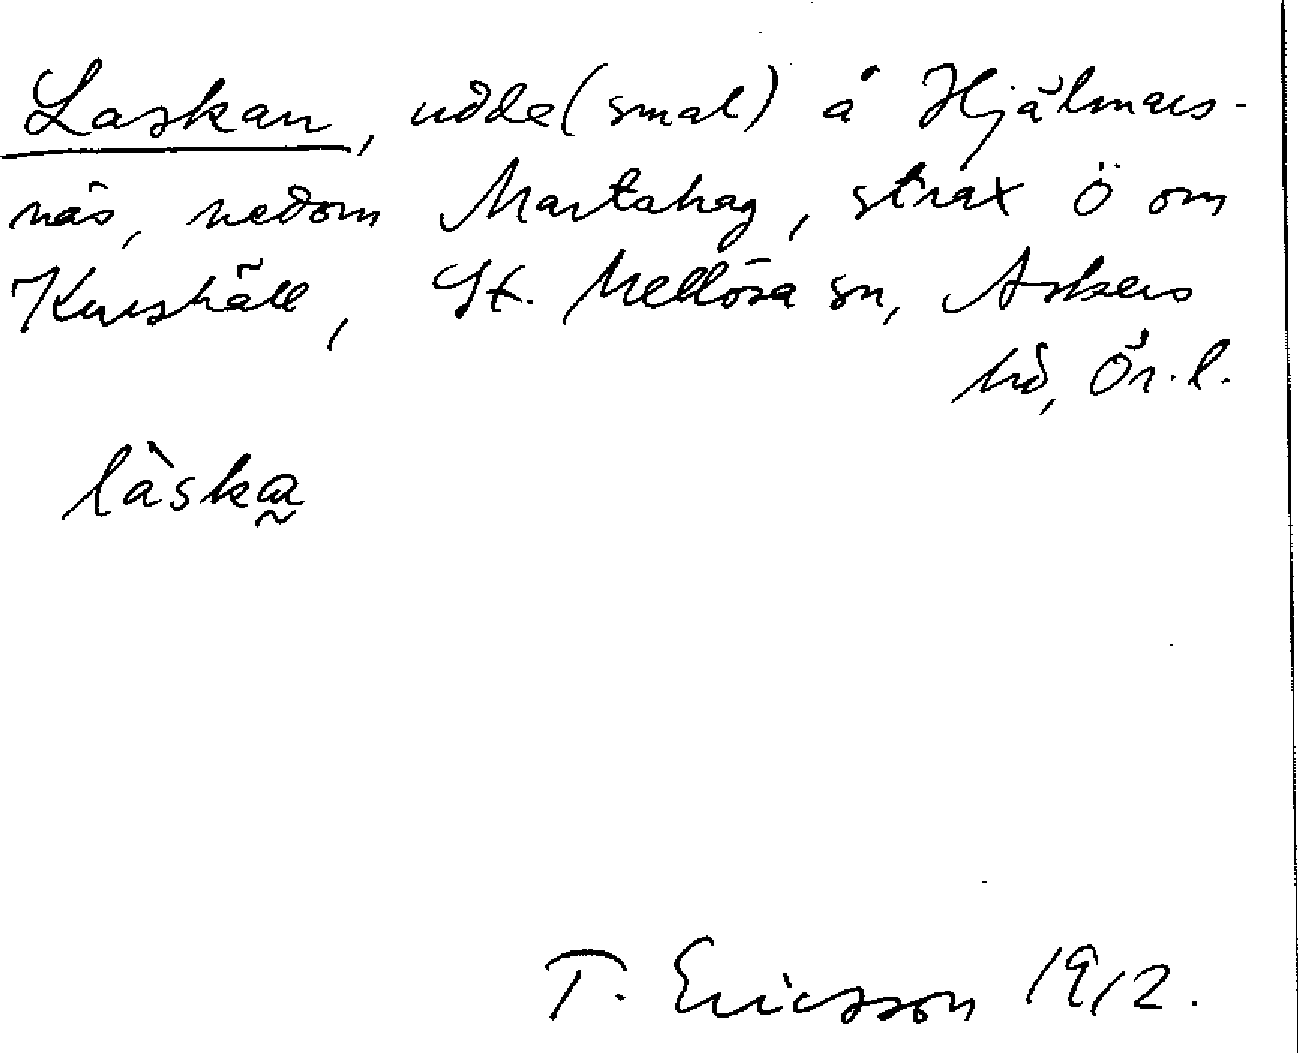 Laskan, udde (smal) å Hjälmars-
näs, nedom Martahag, strax ö om
Kurshäll, St. Mellösa sn, Askers
hd, Ör. l.
làska̰
T. Ericsson 1912.